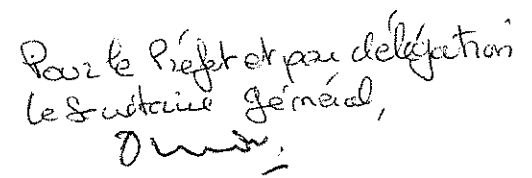 Pour le Préfet et par délégation
le Secrétaire général,